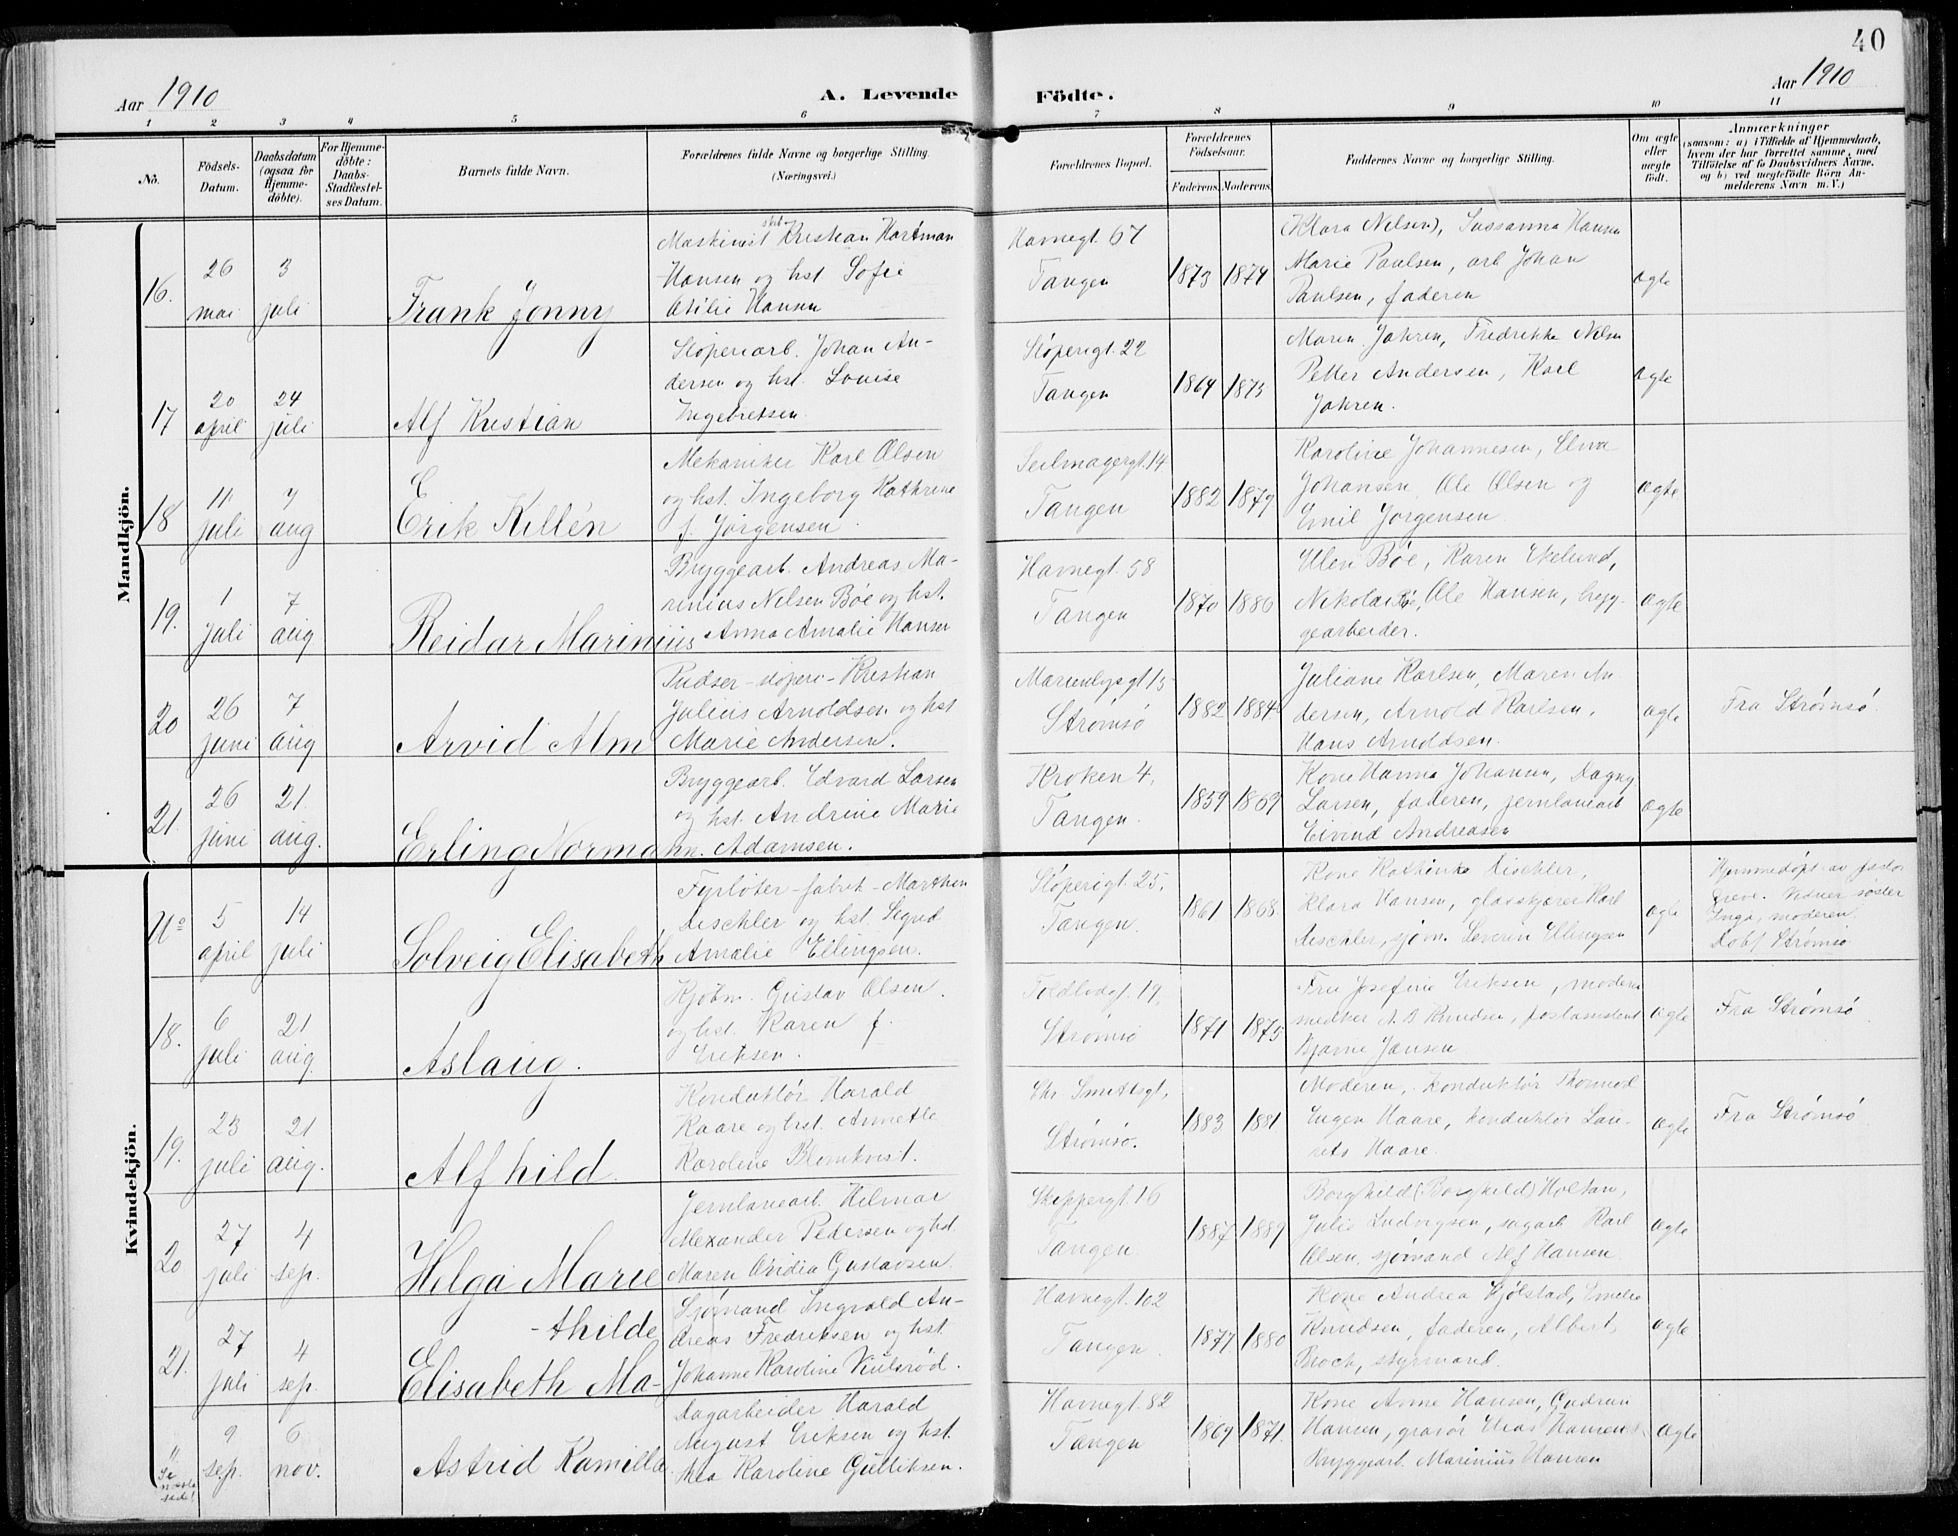 40
Aar 1910
A. Levende Födte.
Aar 1910
1 2 3 4 5 6 7 8 9 10 11
No.
Födsels-Datum.
Daabsdatum (ogsaa for Hjemme-döbte).
For Hjemme-döbte: Daabs-Stadfæstel-ses Datum.
Barnets fulde Navn.
Forældrenes fulde Navne og borgerlige Stilling.
(Næringsvei.)
Forældrenes Bopæl.
Forældrenes Födselsaar.
Faderens. Moderens.
Faddernes Navne og borgerlige Stilling.
Om ægte eller uægte födt.
Anmærkninger
(saasom: a) i Tilfælde af Hjemmedaab, hvem der har forrettet samme, med Tilföielse af to Daabsvidners Navne, og b) ved uægtefödte Börn An-melderens Navn m. V.)
Mandkjön.
16. 26 mai 3 juli
Frank Jonny
Maskinist Kristian Hartman
Hansen og hst Sofie
Otilie Hansen
Havnegt. 67
Tangen
1873 1874
(Klara Nelsen), Sussanna Hansen
Marie Paulsen, arb Johan
Paulsen, faderen
ægte
17 20 april 24 juli
Alf Kristian
Sloperiarb. Johan An-
dersen og hst. Louise
Ingebretsen.
Sloperigt. 22
Tangen
1864 1873
Maren Jahren, Fredrikke Nelsen
Petter Andersen, Karl
Jahren.
ægte
18 11 juli 7 aug
Erik Killén
Mekaniker Karl Olsen
og hst. Ingeborg Kathrine
f. Jørgensen
Seilmagergt. 14
Tangen
1882 1879
Karoline Johannesen, Elna
Johansen, Ole Olsen og
Emil Jørgensen
ægte
19. 1 juli 7 aug.
Reidar Marinius
Bryggearb. Andreas Ma-
rinius Nelsen Bøe og hst.
Anna Amalie Hansen
Havnegt. 58
Tangen
1870 1886
Bøe, Karen Ekelund,
Nikolai Bøe, Ole Hansen, brygg-
gearbeider.
ægte
20 26 juni 7 aug
Arvid Alm
Pudser - sloperi - Kristian
Julius Arnoldsen og hst
Marie Andersen.
Marienlysgt 15
Strømsø
1882 1884
Juliane Karlsen, Maren An
dersen, Arnold Karlsen,
Hans Arnoldsen.
ægte
Fra Strømsø.
21. 26 juni 21. aug.
Erling Norma hn.
Bryggearb. Edvard Larsen
og hst. Andrine Marie
Adamsen.
Kroken 4.
Tangen.
1859 1869
Kone Hanna Johansen, Dagny
Larsen, faderen, jernlanearb
Eivind Andreasen
ægte
Kvindekjön.
No 5 april 14 juli
Solveig Elisabeth
Fyrbøter - fabrik - Marthen
Aischler og hst. Sigrid
Amalie Ellingsen.
Sloperigt. 25.
Tangen.
1861 1868
Kone Kathinka Aischler,
Klara Hansen, glasskjærer Karl
Aischler, sjøm. Severin Ellingsen
ægte
Hjemmedøpt av pastor
Greve. Vidner søster
Inga, moderen.
Døbt Strømsø
18. 6 juli 21 aug.
Aslaug.
Kjøbm. Gustav Olsen.
og hst. Karen f.
Eriksen.
Toldbodgt. 19,
Strømsø
1871 1875
Fru Josefine Eriksen, moderen
A B Knudsen, postassistent
Bjarne Jansen
ægte
Fra Strømsø
19. 23 juli 21 aug.
Alfhild
Konduktør Harald
Kaare og hst. Annette
Karoline Blomkvist.
Chr Smittsgt,
Strømsø.
1883 1881
Moderen, konduktør Thormod
Eugen Haare, konduktør Lau-
rits Haare.
ægte
Fra Strømsø
20 27 juli 4 sep.
Helga Marie
Jernlanearb. Hilmar
Alexander Pedersen og hst.
Maren Ovidia Gustavsen.
Skippergt. 16
Tangen.
1887 1889
Borghild (Borghild) Holtan,
Julie Ludvigsen, sagarb Karl
Olsen, sjømand Alf Hansen.
ægte
21. 27 juli 4 sep.
-thilde
Elisabeth Ma-
Sjømand Ingvald An-
dreas Fredriksen og hst.
Johanne Karoline
Havnegt. 102
Tangen.
1877 1880
Kone Andrea Kjølstad, Emelie
Knudsen, faderen, Albert
Broch, styrmand.
ægte
" 9 sep. 6 nov.
Se næste side!
Astrid Kamilla
Dagarbeider Harald
August Eriksen og hst.
Mea Karoline Gulliksen.
Havnegt. 82
Tangen
1869 1871.
Kone Anne Hansen, Gudrun
Hansen, gravør Elias Hansen
Bryggearb. Marinius Hansen
ægte